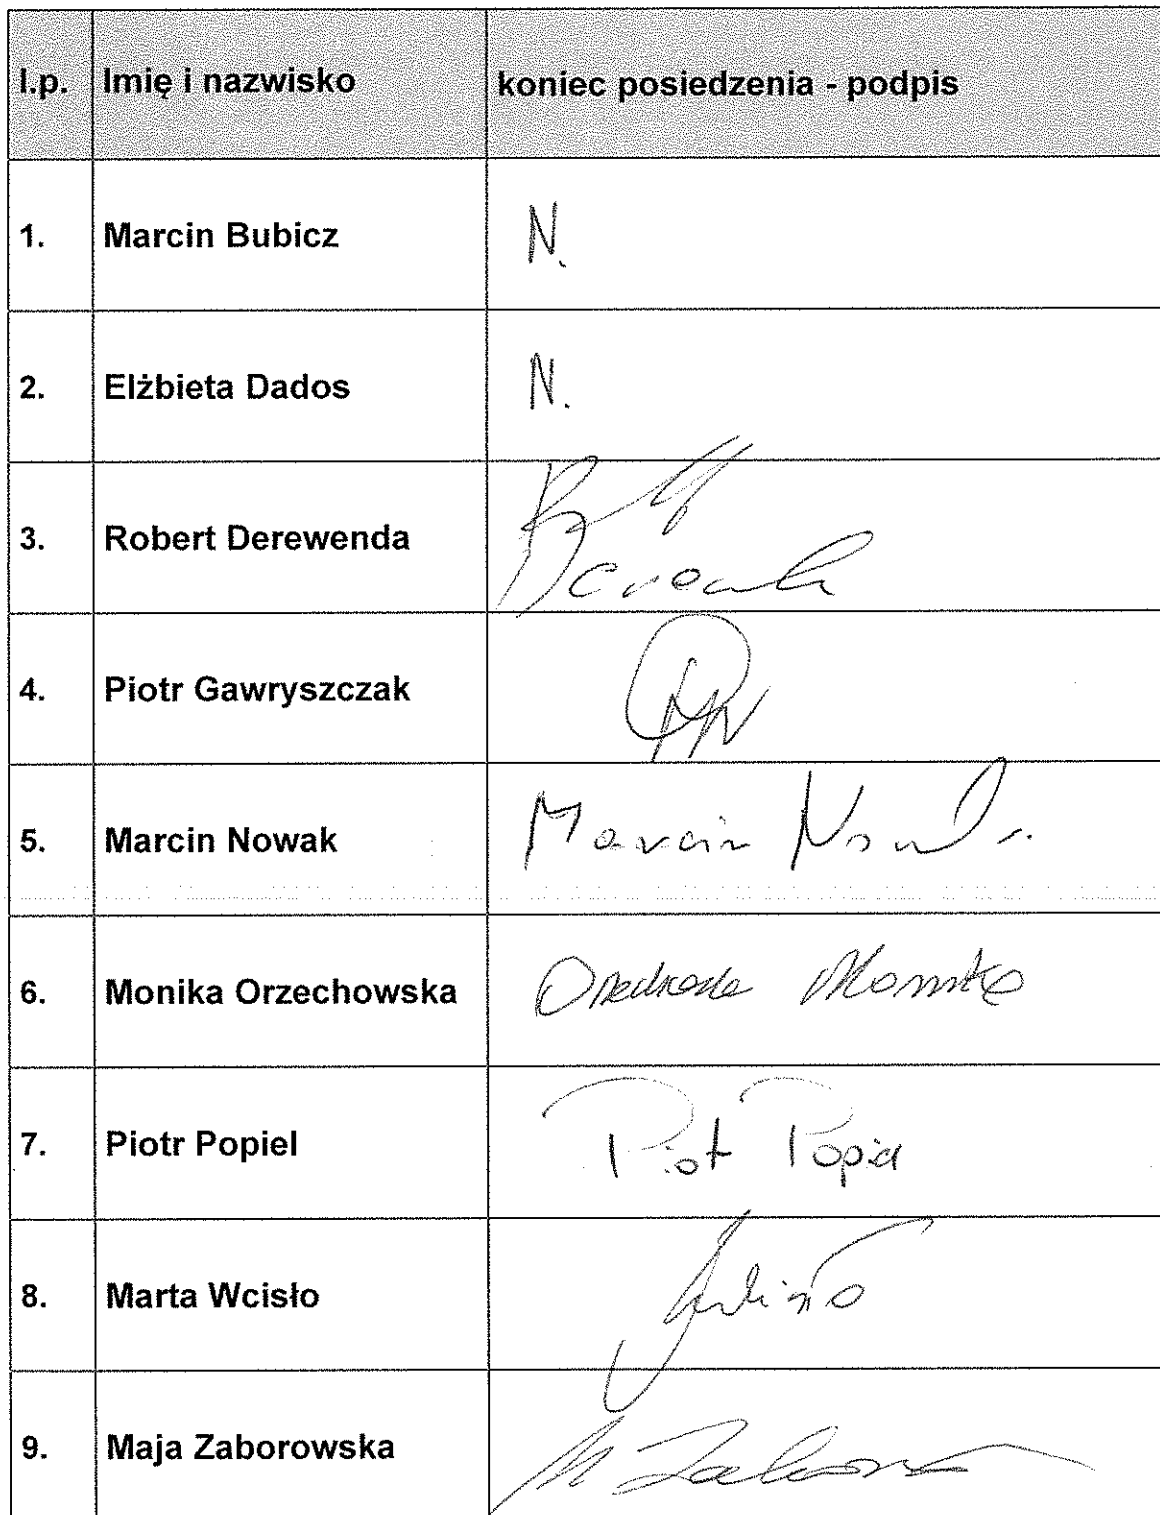 l.p. Imię i nazwisko koniec posiedzenia - podpis
1. Marcin Bubicz N.
2. Elżbieta Dados N.
3. Robert Derewenda
4. Piotr Gawryszczak
5. Marcin Nowak Marcin Nowak
6. Monika Orzechowska
7. Piotr Popiel Piotr Popiel
8. Marta Wcisło
9. Maja Zaborowska